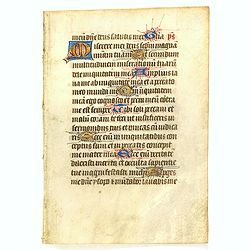 meu dne deus salutis mee Gla ps
Miserere mei deus scdm magnā
miam tuam Et scdm
multitudinem miserationum tuarum
dele iniquitatem meā Amplius la
va me ab iniquitate mea et a pecca
to meo munda me Qm iniquitatē
meā ego cognosco et peccm meū contra
me est semper Tibi soli peccaui et
malum coram te feci ut iustificeris in
sermonibus tuis et uincas cū iudica
ris Ecce enī in iniquitatibus con
ceptus sum et in peccatis concepit
me mater mea Ecce enī ueritatē
dilexisti incerta et occulta sapientie
tue manifestasti michi Asperges
me dne ysopo et mundabor lauabis me